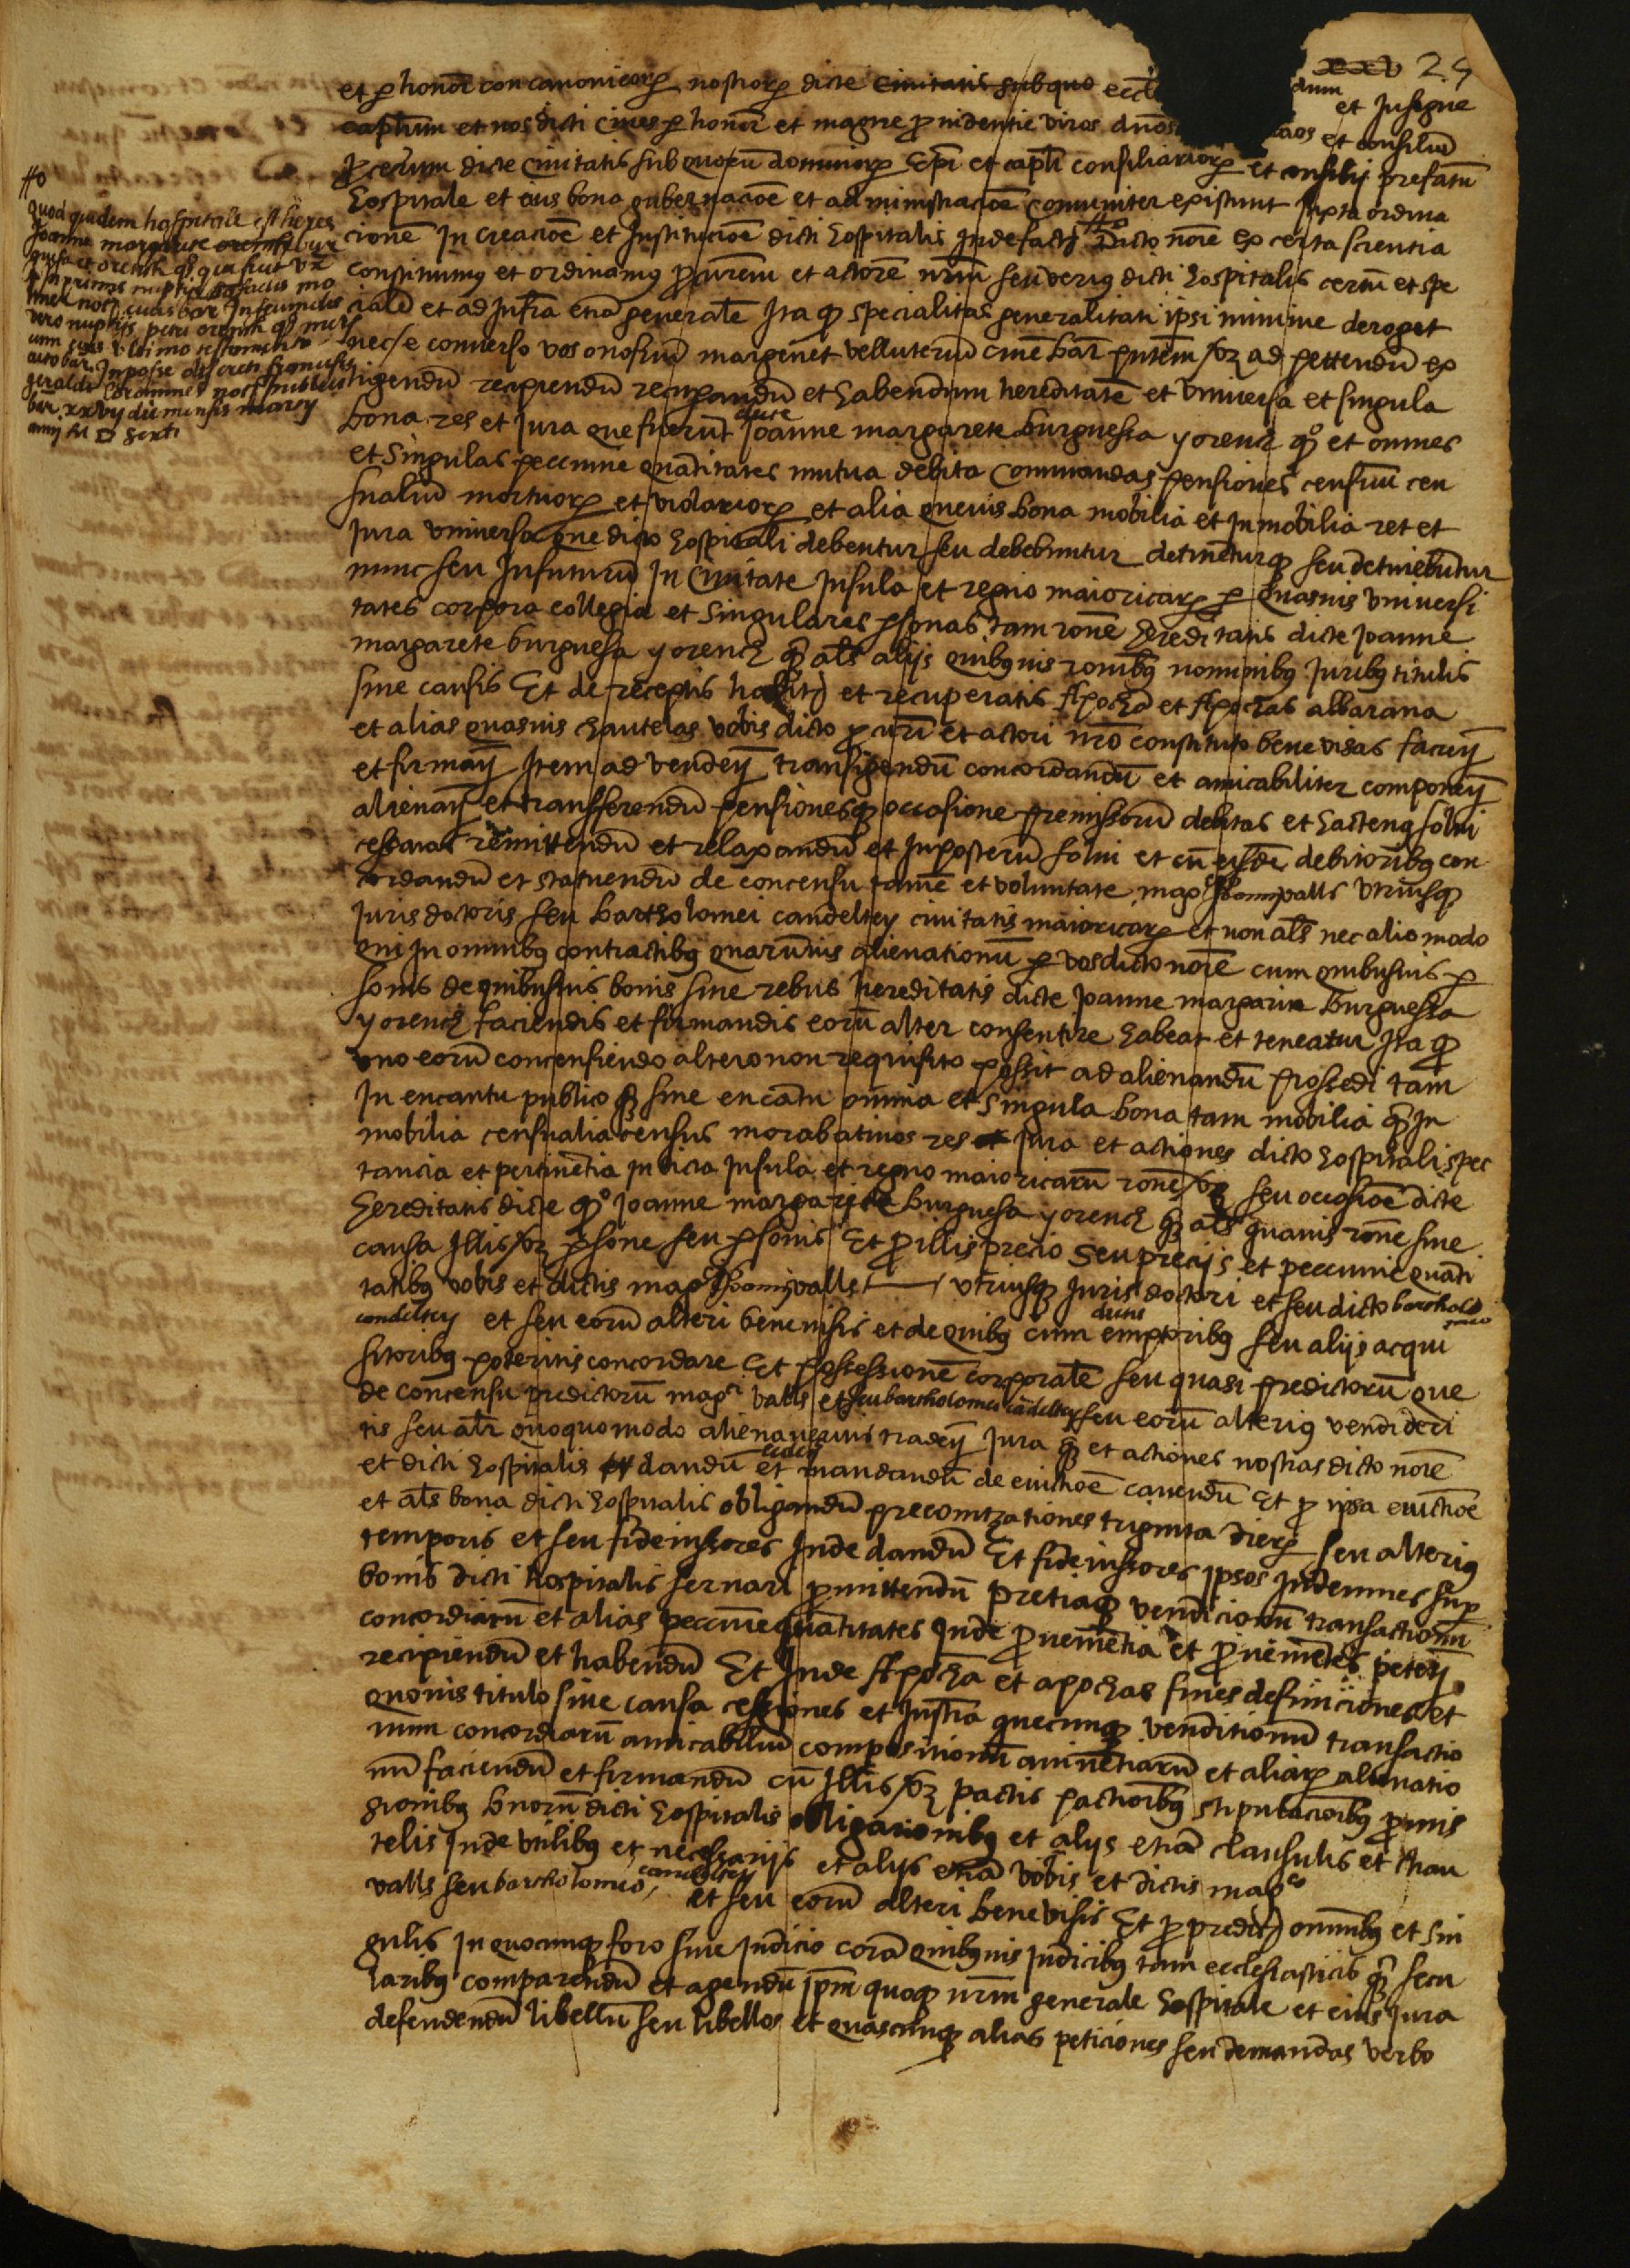 xxv 25
et p honor con canonicorum nostrorum dicte civitatis sub quo eccl dum et Insegne
capitlum et nos dicti cives p honor et magne providentie viros dnos et consiliu
procerum dicte civitatis sub quorū dominiorum Epi et capli consiliariorum et consilij prefatū
hospitale et eius bona gubernacioē et administracioē comuniter existunt Juxta ordina
cionē In creacioē et Institucioē dicti hospitalis Inde factis Dicto noīe ex certa scientia
constituimus et ordinamus procurem et actorē nrūm seu verius dicti hospitalis certū et spe
cialē et ad Infra etiā generalē Ita quod specialitas generalitati ipsi minime deroget
nec e converso vos onofriū margenet velluteriū civē bar pntēm scz ad pettendū ex
tigendū recipiendū recuperandū et habendum hereditatē et universa et singula
bona res et Jura que fuerūt dicte Joanne margarete burguessa y orench qo et omnes
et singulas peccunie quātitates mutua debita commandas pensiones censuū cen
sualiū mortuorum et violariorum et alia quevis bona mobilia et Inmobilia ret et
Jura universa que dicto hospitali debentur seu debebuntur detinēturq seu detinebūtur
nunc seu Infuturū In Civitate Insula et regno maioricarum p quasvis universi
tates corpora collegia et singulares psonas tam ronē hereditatis dicte Joanne
margarete burguesa y orench q als alijs quibusvis ronibus nominibus Juribus titulis
sive causis Et de receptis habitis et recuperatis Apocha et Apochas albarana
et alias quasvis chautelas vobis dicto procuri et actori nro constituto bene visas faciend
et firmand Item ad vendend transigendū concordandū et amicabiliter componend
alienand et transferendū pensionesq occasione premissorū debitas et hactenus solvi
cessatas remittendū et relaxandū et Inposterū solvi et cū eisdē debitoribus con
cordandū et statuendū de concensu tamē et voluntate magci Thomi valls utriusq
Juris doctoris seu bartholomei candeltey civitatis maioricarum et non als nec alio modo
qui In omnibus contractibus quarūvis alienationū p vos dicto noīe cum quibusvis p
sonis de quibusvis bonis sive rebus hereditatis dicte Joanne margarite burguessa
y orench faciendis et firmandis eorū alter consentire habeat et teneatur Ita q
uno eorū concensiendo altero non requisito possit ad alienandū prossedi tam
In encantu publico q sine encātu omnia et singula bona tam mobilia q In
mobilia censualia census morabatinos res et Jura et actiones dicto hospitali spec
tancia et pertinētia In dicta Insula et regno maioricarū ronē scz seu occasioē dicte
hereditatis dicte qo Joanne margarite burguesa y orench q als quavis ronē sive
causa Illis scz psone seu psonis Et pro illis precio seu precijs et peccunie quāti
tatibus vobis et dictis magco Thomi valls utriusq Juris doctori et seu dicto bartholo
meo
candeltey et seu eorū alteri benevisis et de quibus cum dictis emptoribus seu alijs acqui
sitoribus poteritis concordare Et possessionē corporalē seu quasi predictorū que
de concensu predictorū magci valls et seu bartholomei cādeltey seu eorū alterius vendideri
tis seu alr quoquomodo alienaveritis tradend Jura q et actiones nostras dicto noīe
et dicti hospitalis dandū et cedēdū mandandū de evictioē cavendū Et p ipsa evictioē
et als bona dicti hospitalis obligandū preconitzationes triginta dierum seu alterius
temporis et seu fideiussores Inde dandū Et fideiussores ipsos Indemnes sup
bonis dicti hospitalis servari promittendū pretiaq vendicionū transactionū
concordiarū et alias peccunie quātitates Inde provenientia et provenientes petend
recipiendū et habendū Et Inde Apocha et apochas fines definiciones et
quovis titulo sive causa cessiones et Instra quecunq venditionū transactio
num concordiarū amicabiliū compositionū avinētiarū et aliarum alienatio
nū faciendū et firmandū cū Illis scz pactis pactioībus stipulacioībus promis
sionibus bnorū dicti hospitalis obligationibus et alijs etiā clausulis et chau
telis Inde utilibus et necessarijs et alijs etiā vobis et dictis magco
valls seu bartholomeo candeltey et seu eorū alteri benevisis Et pro predictis omnibus et sin
gulis In quocunq foro sive Judicio corā quibusvis Judicibus tam ecclesiasticis q secu
laribus comparendū et agendū Ipm quoq nrm generale hospitale et eius Jura
defendendū libellū seu libellos et quascunq alias peticiones seu demandas verbo
quod quidem hospitale est heres
Joanne margarite orench bur
guesa et orench qo que fuit ux
In primis nuptijs
vero nuptijs petri orench qo mer
cum suo ultimo testamento
bar. Inposse discreti
geraldi notarij publici
bar. xxvij die mensis marcij
anni M D sexti